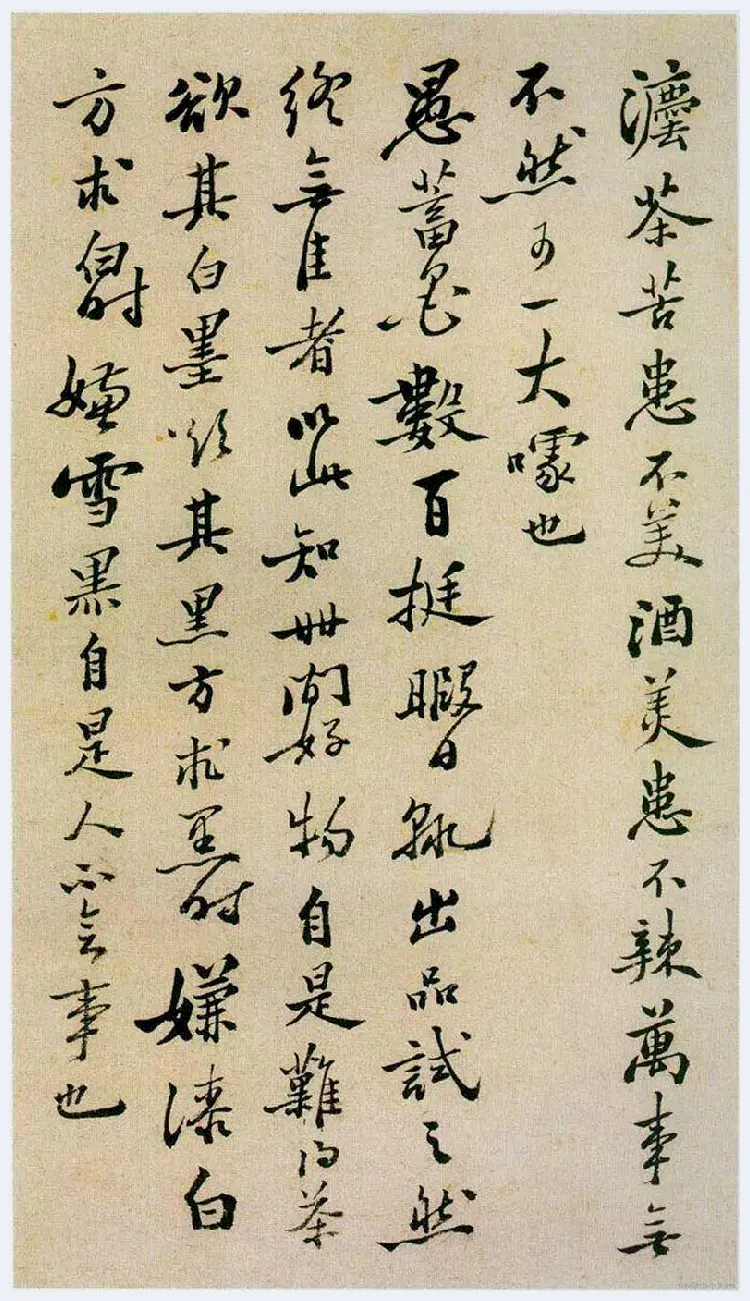 茶苦患不美酒美患不辣萬事無
不然可一大噱也
愚蓄墨數百挺暇日輒出品試之然
終無佳者以此知世間好物自是難得茶
欲其白墨欲其黑方求黑時嫌漆白
方求白時嫌雪黑自是人不會事也